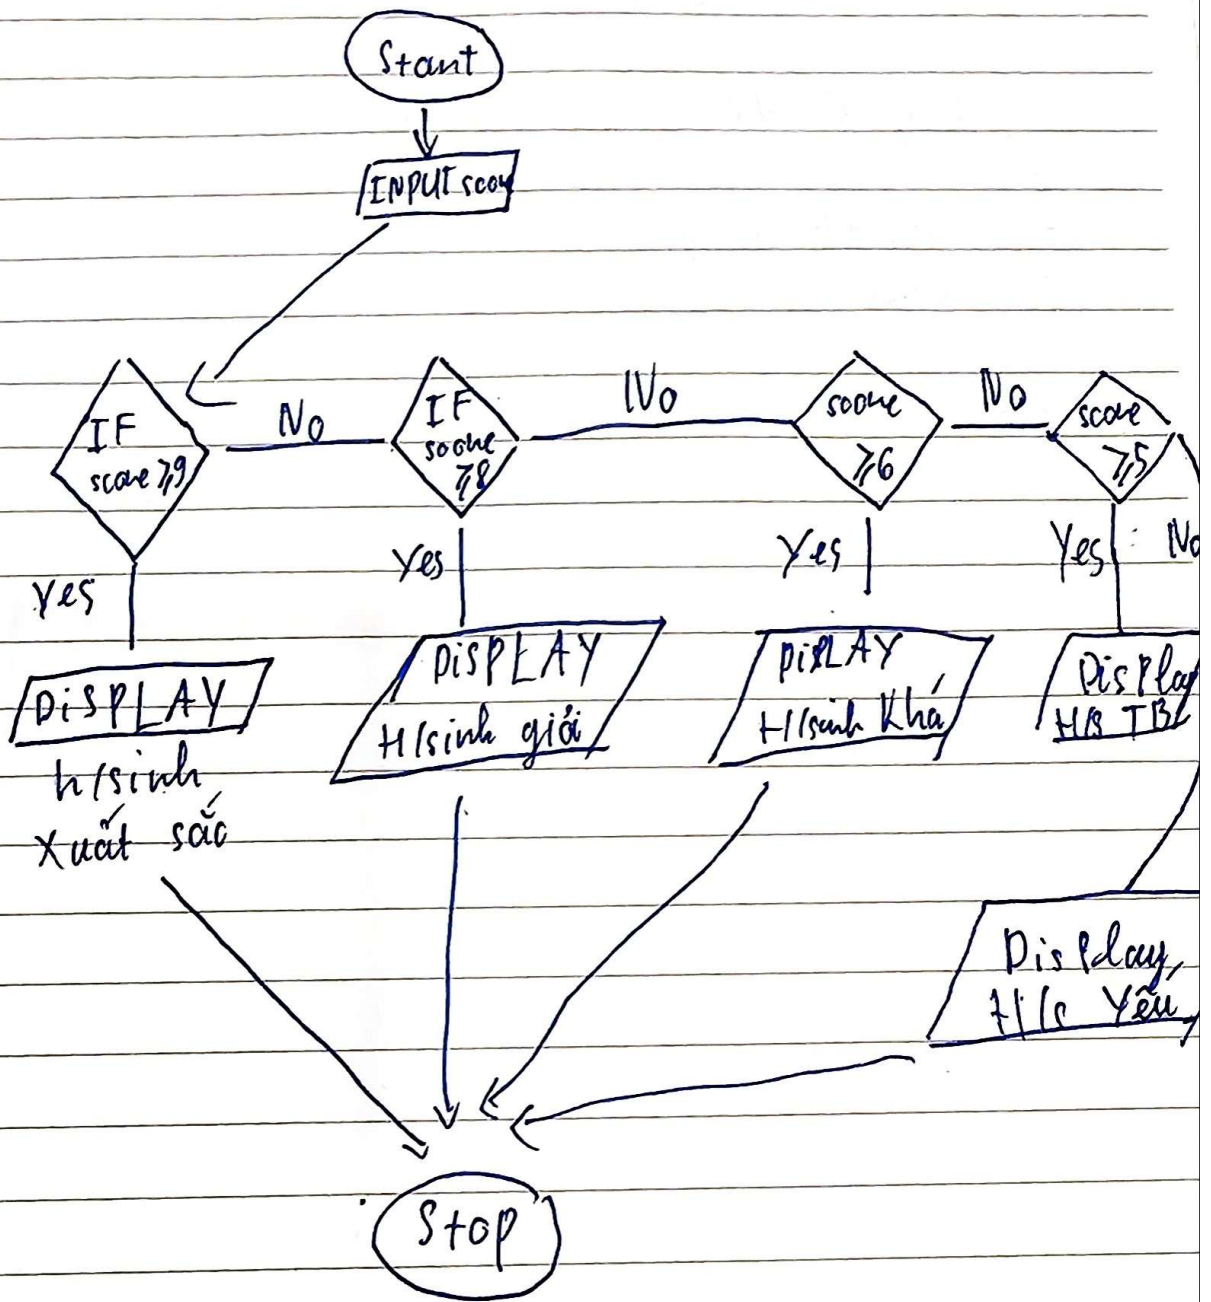 Start
INPUT score
IF
score ≥9
No
IF
score
≥8
No
score
≥6
No
score
≥5
Yes
Yes
Yes
Yes
No
DISPLAY
h/sinh
Xuất sắc
DISPLAY
H/sinh giỏi
DISPLAY
H/sinh Khá
Display
H/s TB
Display
H/s Yếu
Stop